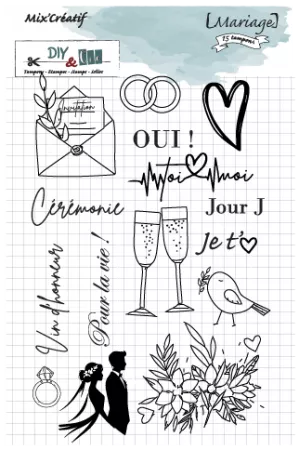 Mix'Créatif
[Mariage]
15 tampons
DIY
&
Tampons - Stempel - Stamps - Sellos
Invitation
OUI !
Toi moi
Cérémonie
Jour J
Je t'
Vin d'honneur
Pour la vie !